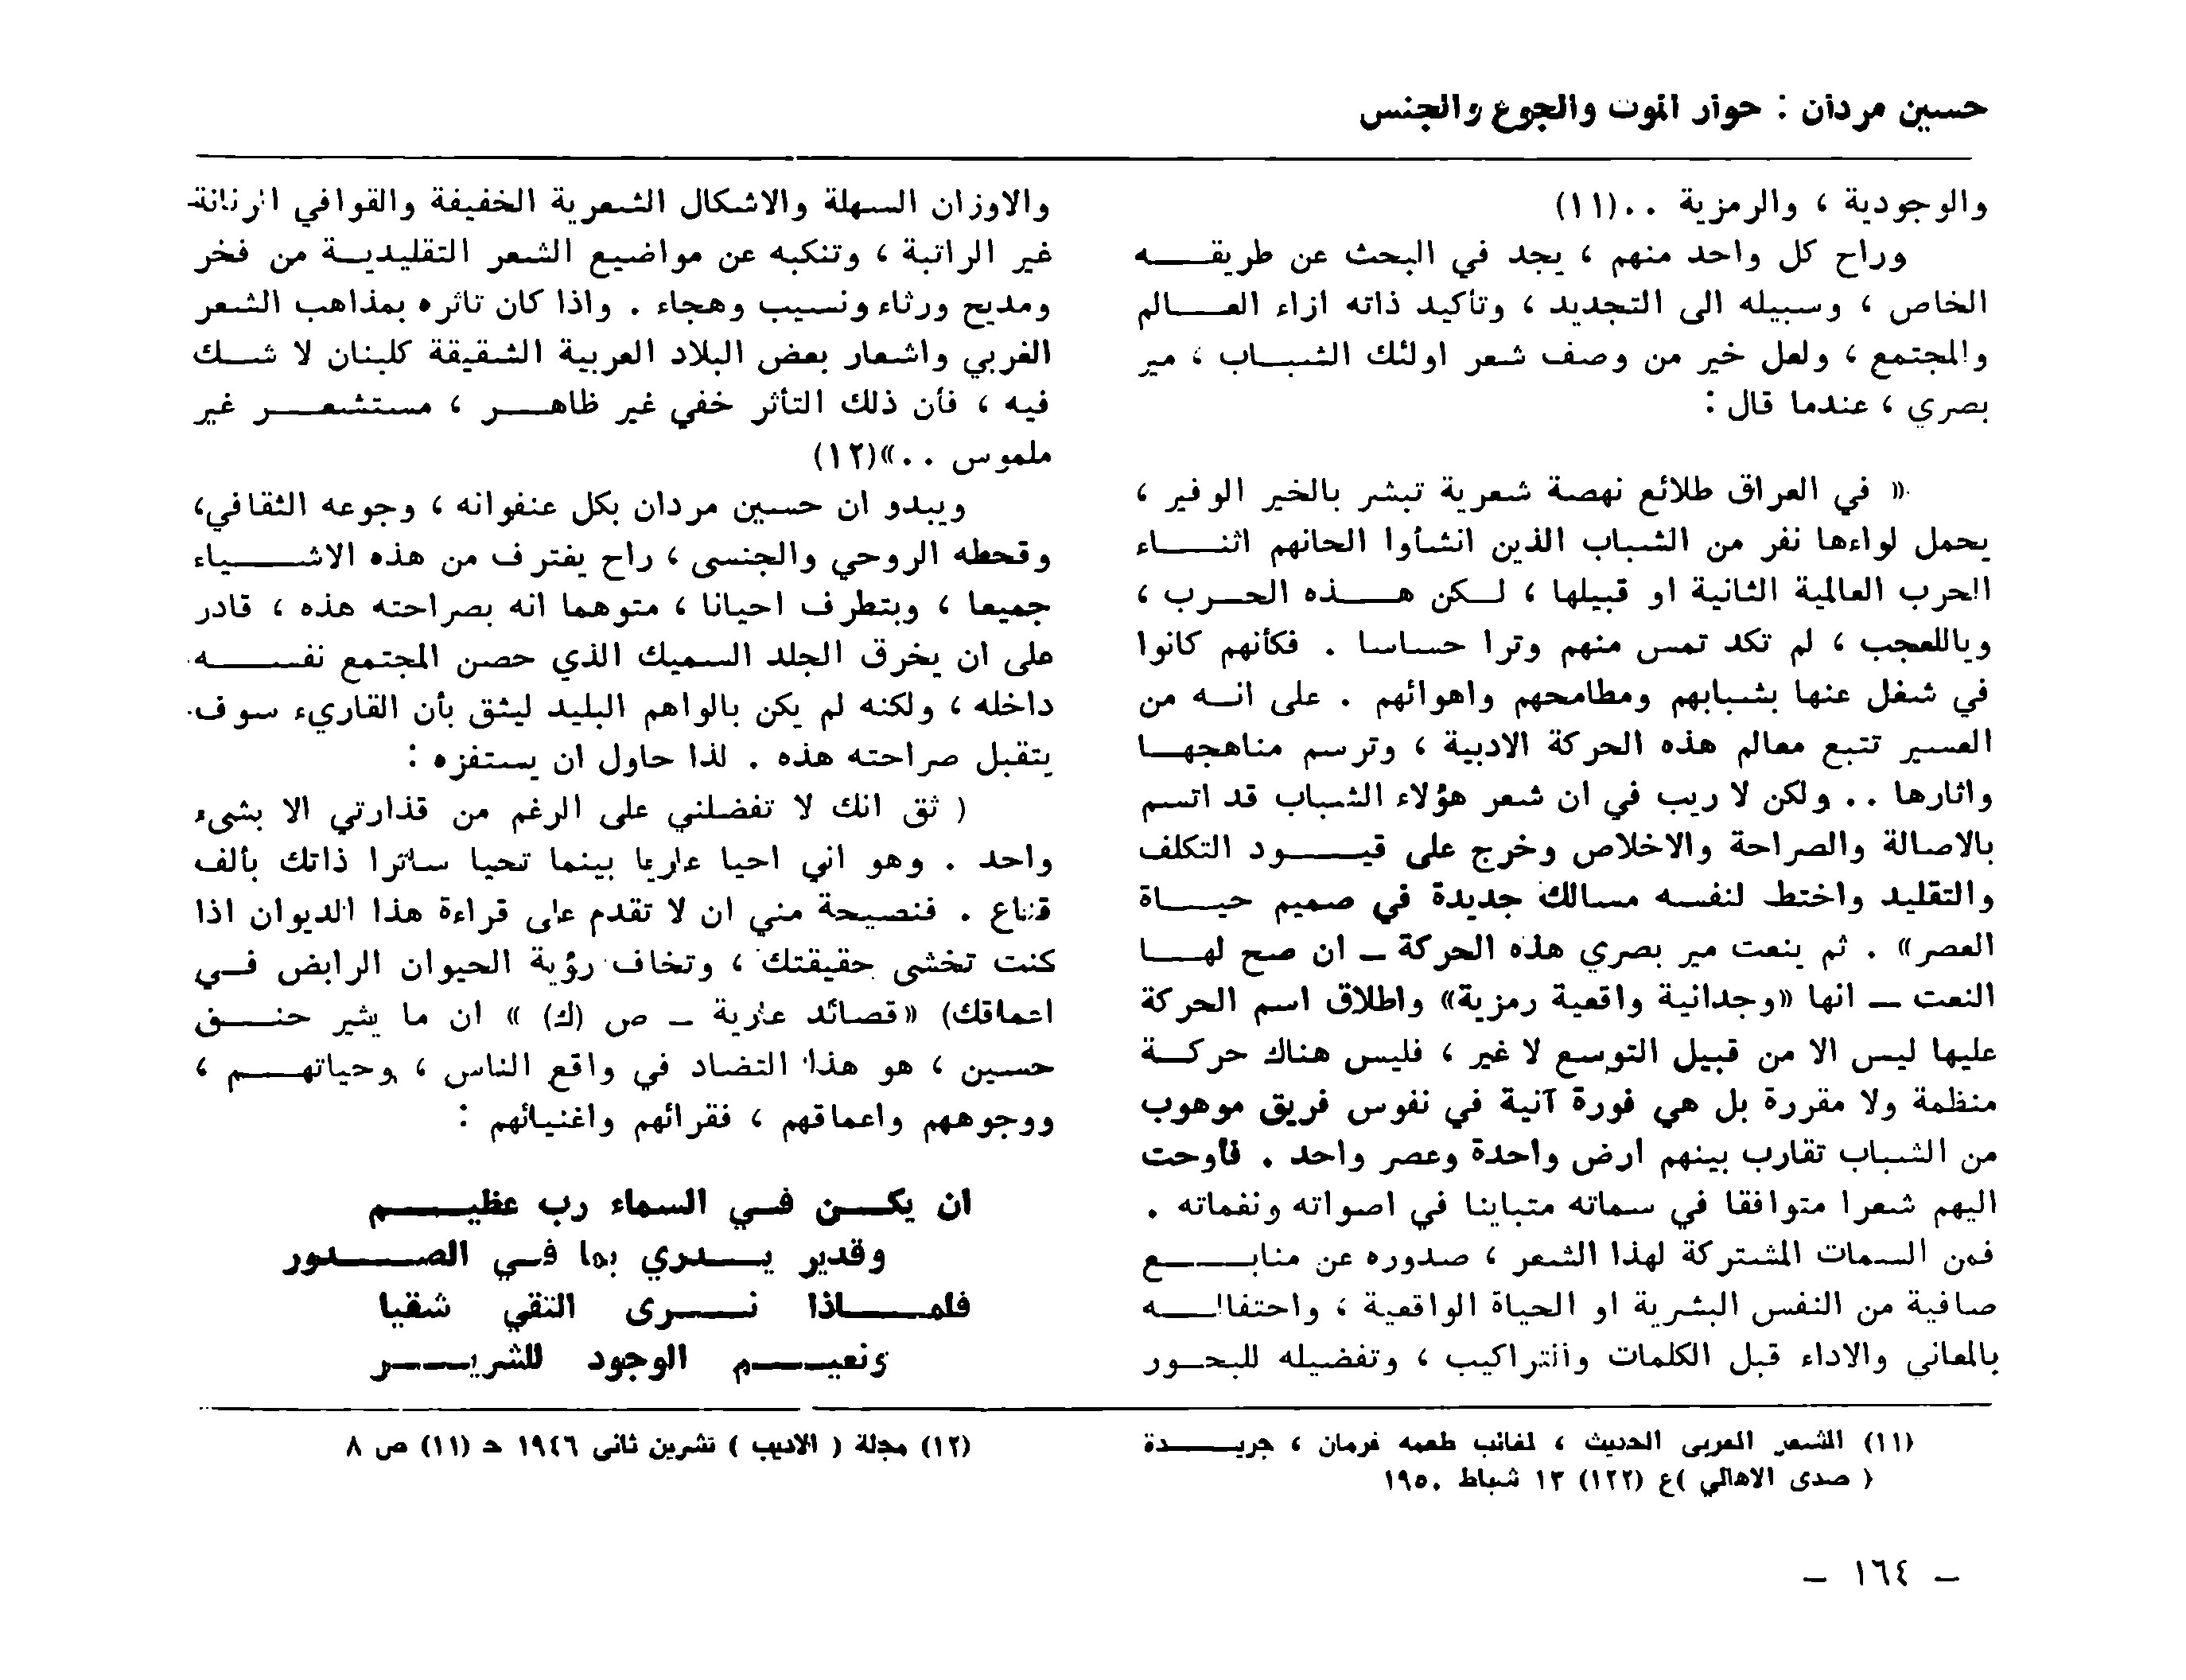 حسين مردان : حوار الموت والجوع والجنس
والوجودية ، والرمزية ..(١١)
وراح كل واحد منهم ، يجد في البحث عن طريقه
الخاص ، وسبيله الى التجديد ، وتأكيد ذاته ازاء العالم
والمجتمع ، ولعل خير من وصف شعر اولئك الشباب ، مير
بصري ، عندما قال :
« في العراق طلائع نهصة شعرية تبشر بالخير الوفير ،
يحمل لواءها نفر من الشباب الذين انشأوا الحانهم اثناء
الحرب العالمية الثانية او قبيلها ، لكن هذه الحرب ،
وياللعجب ، لم تكد تمس منهم وترا حساسا . فكأنهم كانوا
في شغل عنها بشبابهم ومطامحهم واهوائهم . على انه من
العسير تتبع معالم هذه الحركة الادبية ، وترسم مناهجها
واثارها .. ولكن لا ريب في ان شعر هؤلاء الشباب قد اتسم
بالاصالة والصراحة والاخلاص وخرج على قيود التكلف
والتقليد واختط لنفسه مسالك جديدة في صميم حياة
العصر» . ثم ينعت مير بصري هذه الحركة ـ ان صح لها
النعت ـ انها «وجدانية واقعية رمزية» واطلاق اسم الحركة
عليها ليس الا من قبيل التوسع لا غير ، فليس هناك حركة
منظمة ولا مقررة بل هي فورة آنية في نفوس فريق موهوب
من الشباب تقارب بينهم ارض واحدة وعصر واحد . فأوحت
اليهم شعرا متوافقا في سماته متباينا في اصواته ونغماته .
فمن السمات المشتركة لهذا الشعر ، صدوره عن منابع
صافية من النفس البشرية او الحياة الواقعية ، واحتفاله
بالمعاني والاداء قبل الكلمات والتراكيب ، وتفضيله للبحور
والاوزان السهلة والاشكال الشعرية الخفيفة والقوافي الرنانة
غير الراتبة ، وتنكبه عن مواضيع الشعر التقليدية من فخر
ومديح ورثاء ونسيب وهجاء . واذا كان تاثره بمذاهب الشعر
الغربي واشعار بعض البلاد العربية الشقيقة كلبنان لا شك
فيه ، فأن ذلك التأثر خفي غير ظاهر ، مستشعر غير
ملموس ..»(١٢)
ويبدو ان حسين مردان بكل عنفوانه ، وجوعه الثقافي،
وقحطه الروحي والجنسى ، راح يغترف من هذه الاشياء
جميعا ، وبتطرف احيانا ، متوهما انه بصراحته هذه ، قادر
على ان يخرق الجلد السميك الذي حصن المجتمع نفسه
داخله ، ولكنه لم يكن بالواهم البليد ليثق بأن القاريء سوف
يتقبل صراحته هذه . لذا حاول ان يستفزه :
( ثق انك لا تفضلني على الرغم من قذارتي الا بشىء
واحد . وهو اني احيا عاريا بينما تحيا ساترا ذاتك بألف
قناع . فنصيحة مني ان لا تقدم على قراءة هذا الديوان اذا
كنت تخشى حقيقتك ، وتخاف رؤية الحيوان الرابض في
اعماقك) «قصائد عارية ـ ص (ك) » ان ما يثير حنق
حسين ، هو هذا التضاد في واقع الناس ، وحياتهم ،
ووجوههم واعماقهم ، فقرائهم واغنيائهم :
ان يكن في السماء رب عظيم
وقدير يدري بما في الصدور
فلماذا نرى التقي شقيا
ونعيم الوجود للشرير
(١١) الشعر العربى الحديث ، لغائب طعمه فرمان ، جريدة
( صدى الاهالي )ع (١٢٢) ١٣ شباط ١٩٥٠
(١٢) مجلة ( الاديب ) تشرين ثانى ١٩٤٦ حـ (١١) ص ٨
ـ ١٦٤ ـ